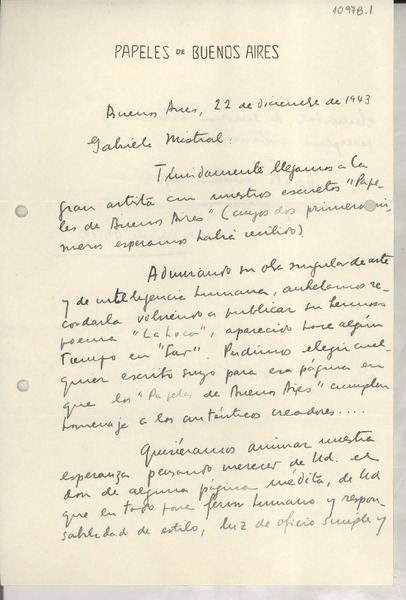 1097B.1
PAPELES DE BUENOS AIRES
Buenos Aires, 22 de diciembre de 1943
Gabriela Mistral:
Tímidamente llegamos a la
gran artista con nuestros escuetos "Pape-
les de Buenos Aires" (cuyos dos primeros nú-
meros esperamos habrá recibido).
Admirando su obra singular de arte
y de inteligencia humana, anhelamos re-
cordarla volviendo a publicar su hermoso
poema "La Loca", aparecido hace algún
tiempo en "Sur". Pudimos elegir cual-
quier escrito suyo para esa página en
que los "Papeles de Buenos Aires" cumplen
homenaje a los auténticos creadores....
Querríamos animar nuestra
esperanza pensando merecer de Ud. el
don de alguna página inédita, de Ud
que en todo pone fervor humano y respon-
sabilidad de estilo, luz de oficio simple y